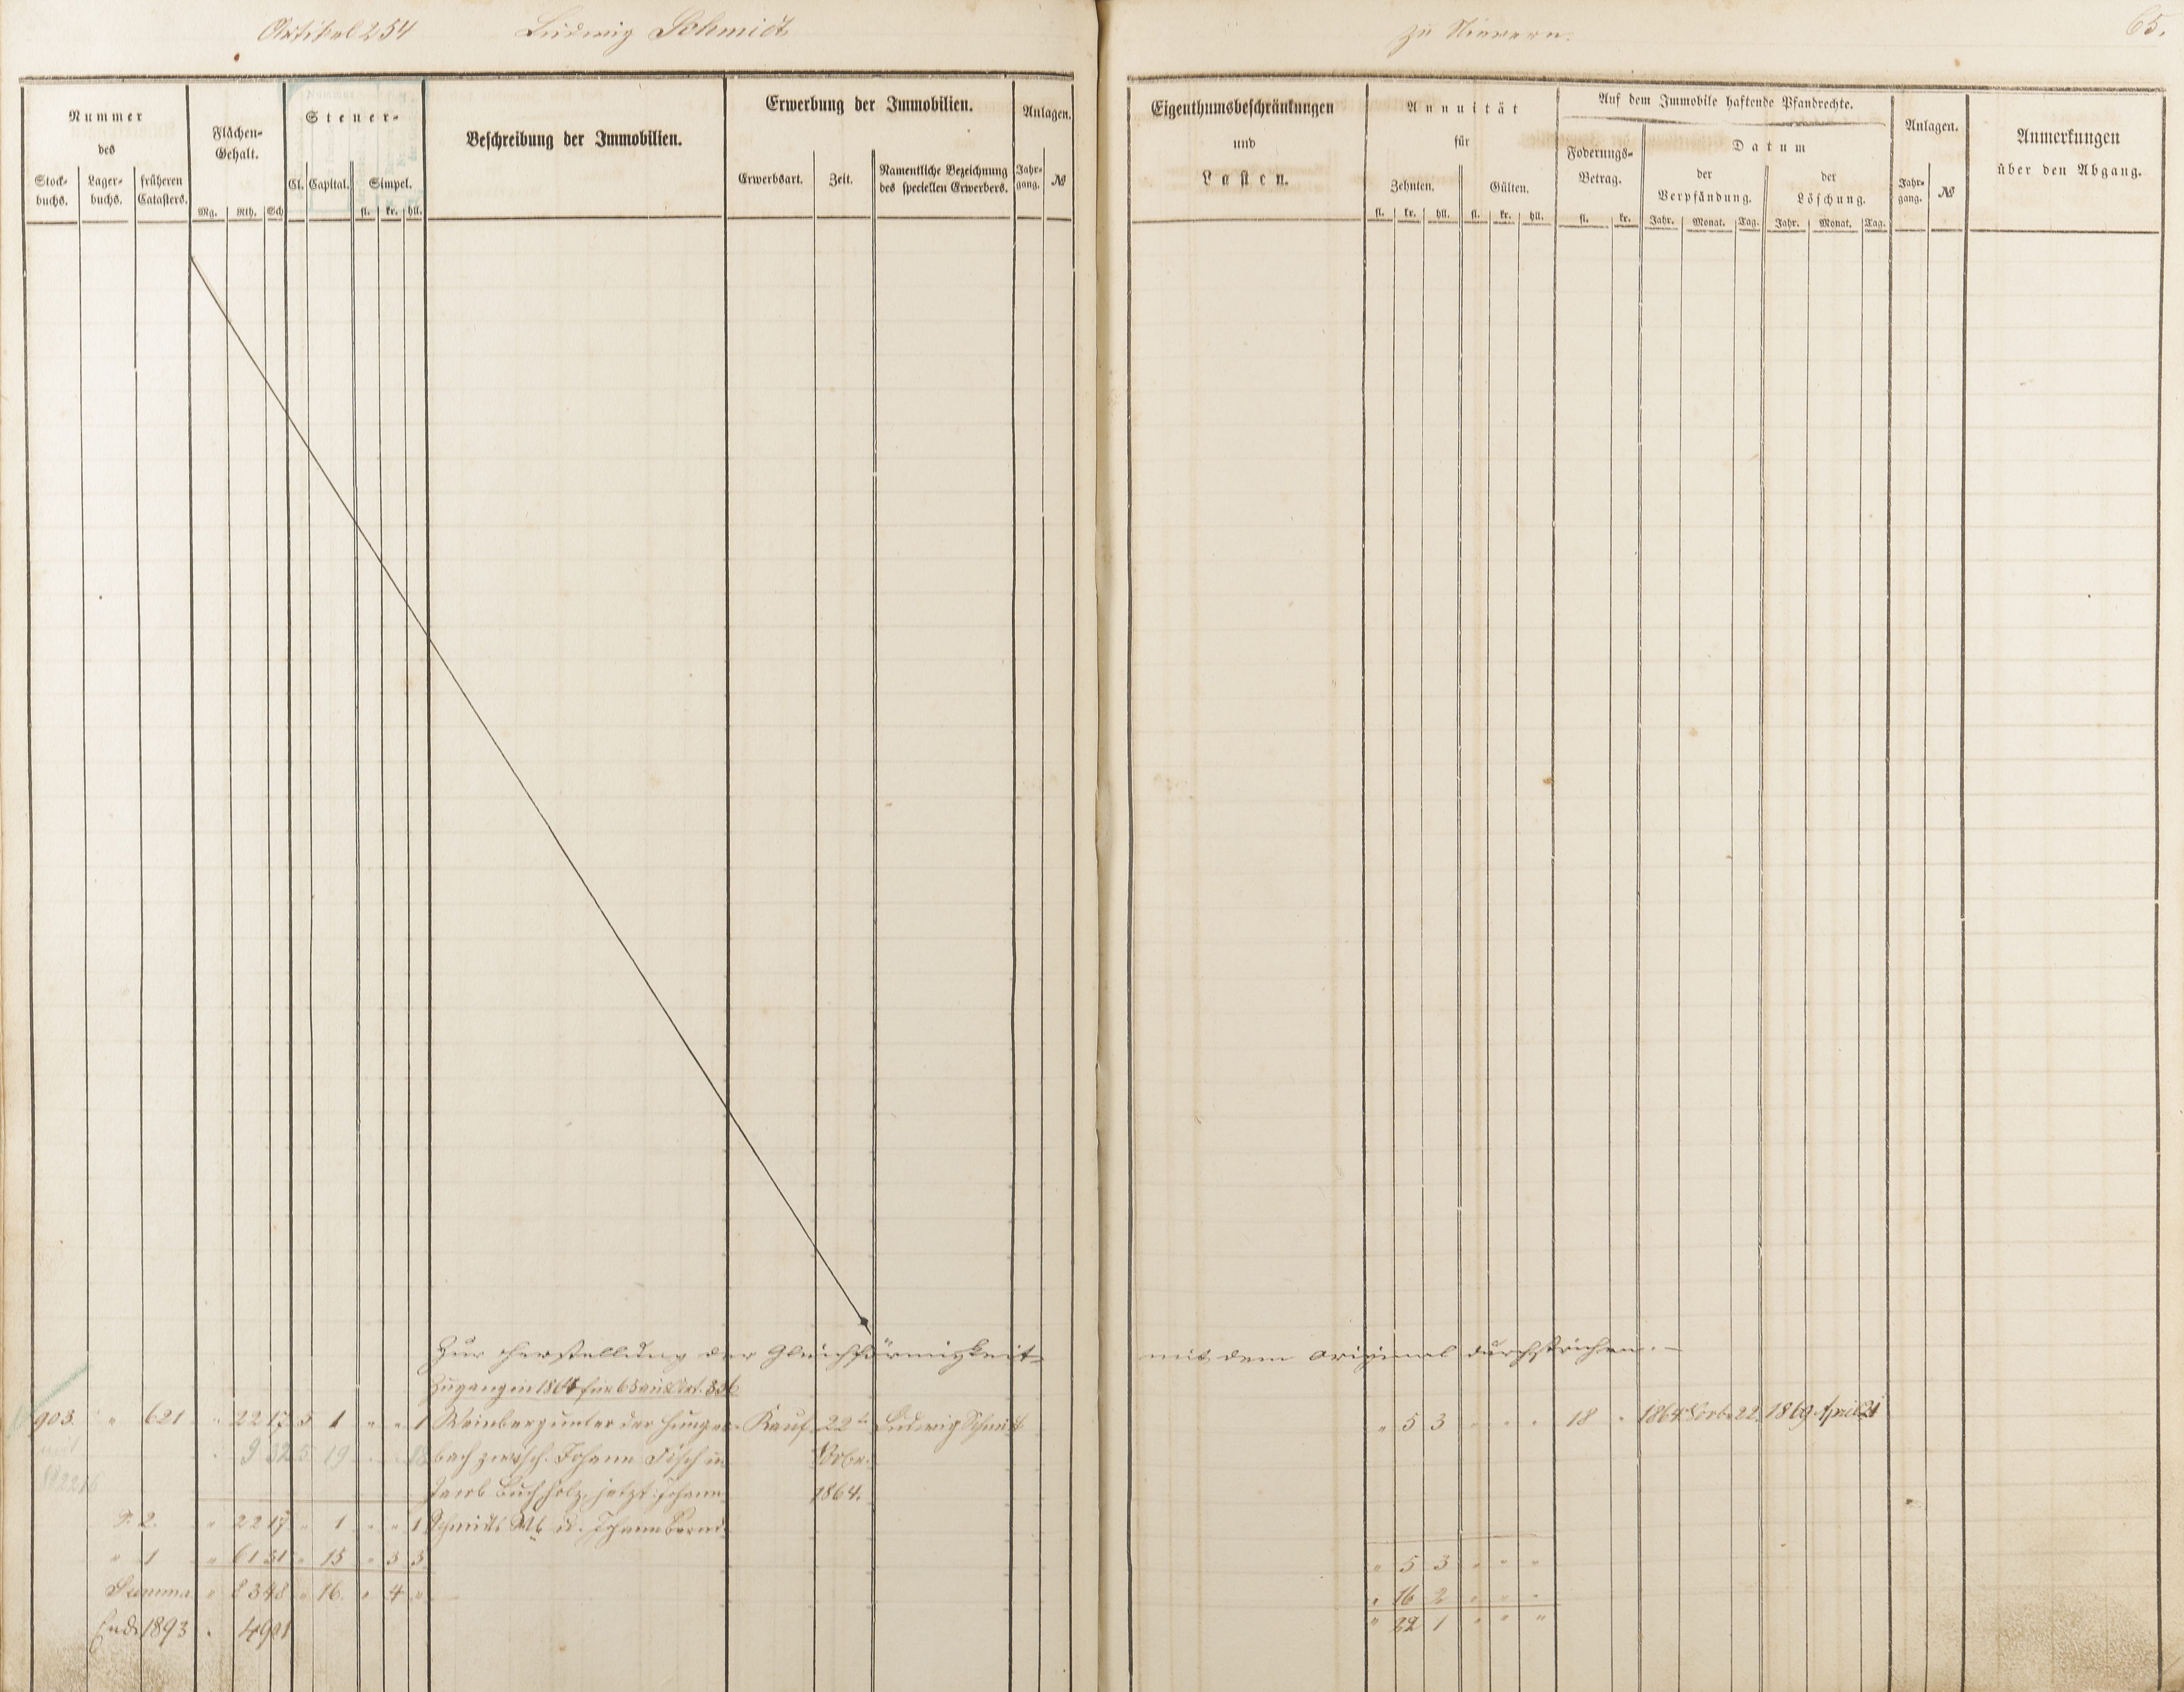 Artikel 254 Ludwig Schmidt zu Nievern. 65.
Nummer des
Stock-buchs. Lager-buchs. früheren Catasters.
Flächen-Gehalt.
Mg. Rth. Sch
Steuer-
Cl. Capital. Simpel.
fl. kr. hll.
Beschreibung der Immobilien.
Erwerbung der Immobilien.
Erwerbsart. Zeit. Namentliche Bezeichnung des speciellen Erwerbers.
Anlagen.
Jahr-gang. №
Eigenthumsbeschränkungen
und
Lasten.
Annuität
für
Zehnten. Gülten.
fl. kr. hll. fl. kr. hll.
Auf dem Immobile haftende Pfandrechte.
Foderungs-Betrag.
fl. kr.
Datum
der Verpfändung. der Löschung.
Jahr. Monat. Tag. Jahr. Monat. Tag.
Anlagen.
Jahr-gang. №
Anmerkungen
über den Abgang.
Zur Herstellung der Gleichförmigkeit mit dem Original durchstrichen. —
Zugang in für 65 aus Art.
903. " 621 " 22 17 5 1 " " 1 Weinberg unter der Kauf 22t Ludwig Schmidt " 5 3 " " " 18 " 1864 22. 1869 April 21
9 32 5 19 18 bach zwisch. Johann
Jacob Buchholz, jetzt: Johann 1864.
P. 2. " 22 17 " 1 " " 1 Schmidt u. Johann
" 1 " 61 31 " 15 " 3 3 " 5 3 " " "
Summa " 83 48 " 16. " 4 " " 16 2 " " "
Ende 1893 " 49 01 " 22 1 " " "